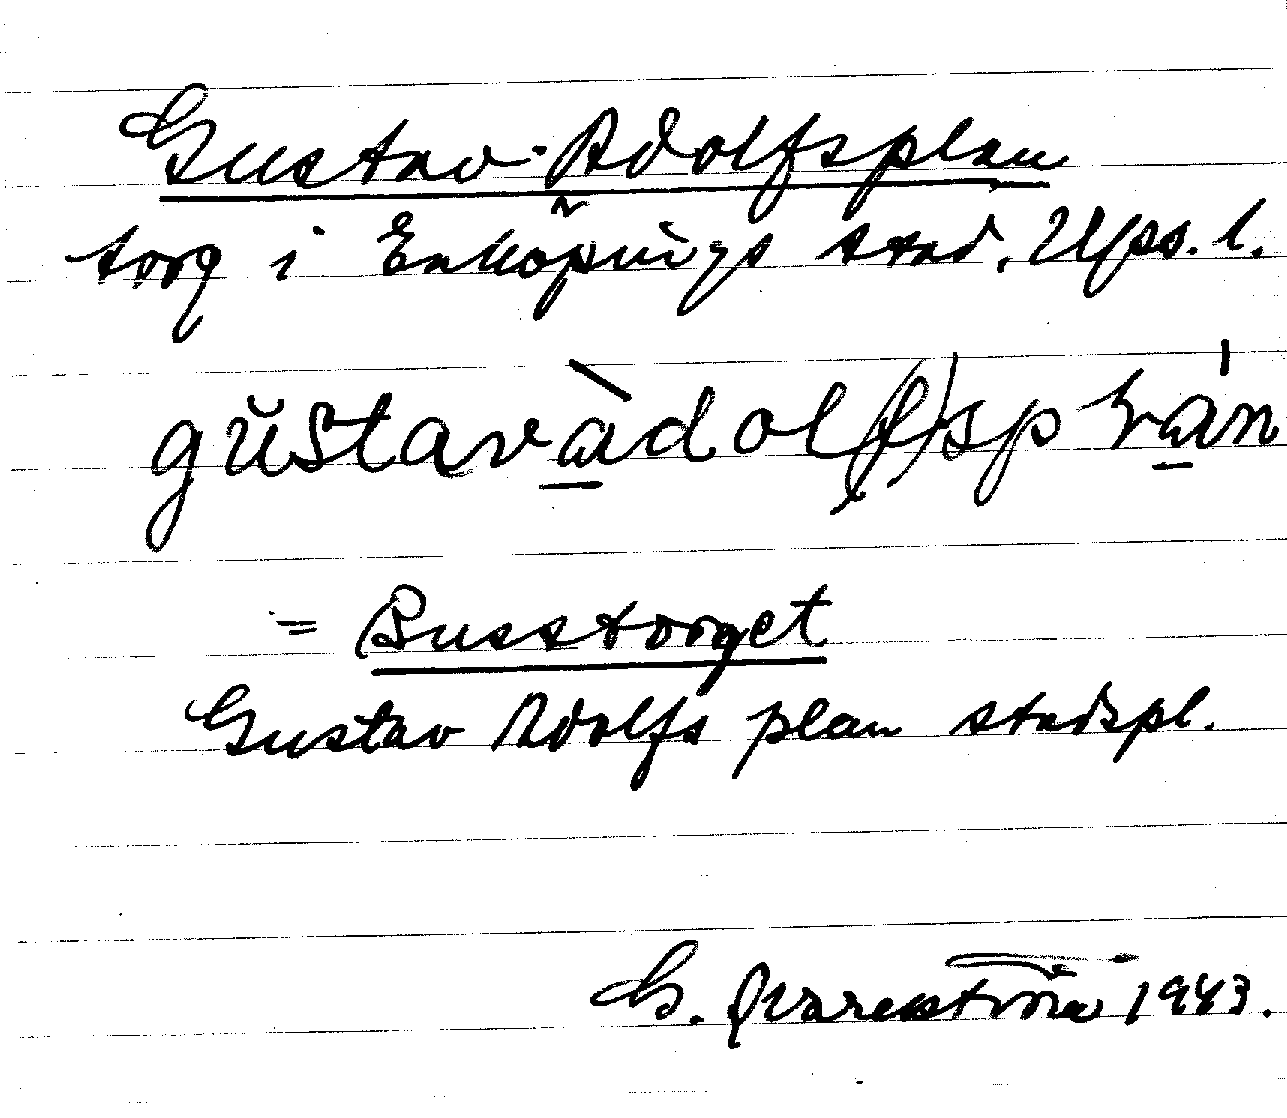 Gustav-Adolfsplan
torg i Enköpings stad, Ups. l.
gŭstavàdol(f)splán
= Busstorget
Gustav Adolfs plan stadspl.
G. Qvarnström 1943.